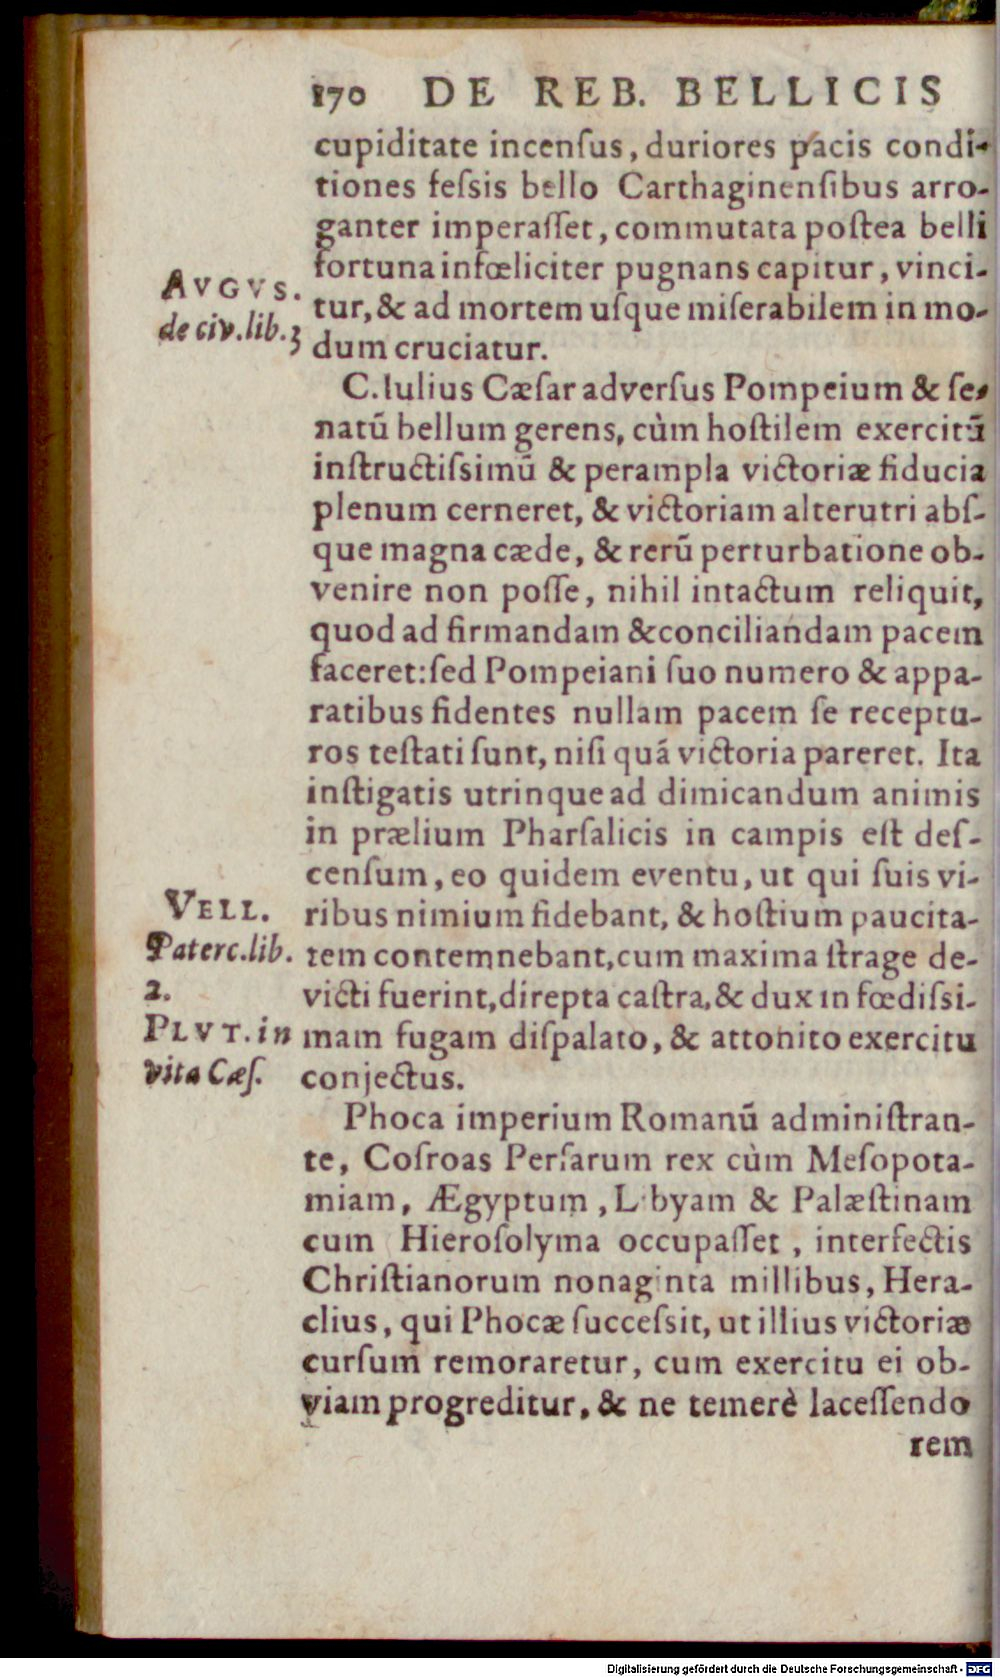 170 DE REB. BELLICIS
cupiditate incenſus, duriores pacis condi-
tiones feſsis bello Carthaginenſibus arro-
ganter imperaſſet, commutata poſtea belli
fortuna infœliciter pugnans capitur, vinci-
tur, & ad mortem uſque miſerabilem in mo-
dum cruciatur.
AVGVS.
de civ. lib. 3
C. Iulius Cæſar adverſus Pompeium & ſe-
natū bellum gerens, cùm hoſtilem exercitū
inſtructiſsimū & perampla victoriæ fiducia
plenum cerneret, & victoriam alterutri abſ-
que magna cæde, & rerū perturbatione ob-
venire non poſſe, nihil intactum reliquit,
quod ad firmandam & conciliandam pacem
faceret: ſed Pompeiani ſuo numero & appa-
ratibus fidentes nullam pacem ſe receptu-
ros teſtati ſunt, niſi quā victoria pareret. Ita
inſtigatis utrinque ad dimicandum animis
in prælium Pharſalicis in campis eſt deſ-
cenſum, eo quidem eventu, ut qui ſuis vi-
ribus nimium fidebant, & hoſtium paucita-
tem contemnebant, cum maxima ſtrage de-
victi fuerint, direpta caſtra, & dux in fœdiſsi-
mam fugam diſpalato, & attonito exercitu
conjectus.
VELL.
Paterc. lib.
2.
PLVT. in
vita Cæſ.
Phoca imperium Romanū adminiſtran-
te, Coſroas Perſarum rex cùm Meſopota-
miam, Ægyptum, Libyam & Palæſtinam
cum Hieroſolyma occupaſſet, interfectis
Chriſtianorum nonaginta millibus, Hera-
clius, qui Phocæ ſucceſsit, ut illius victoriæ
curſum remoraretur, cum exercitu ei ob-
viam progreditur, & ne temerè laceſſendo
rem
Digitalisierung gefördert durch die Deutsche Forschungsgemeinschaft - DFG